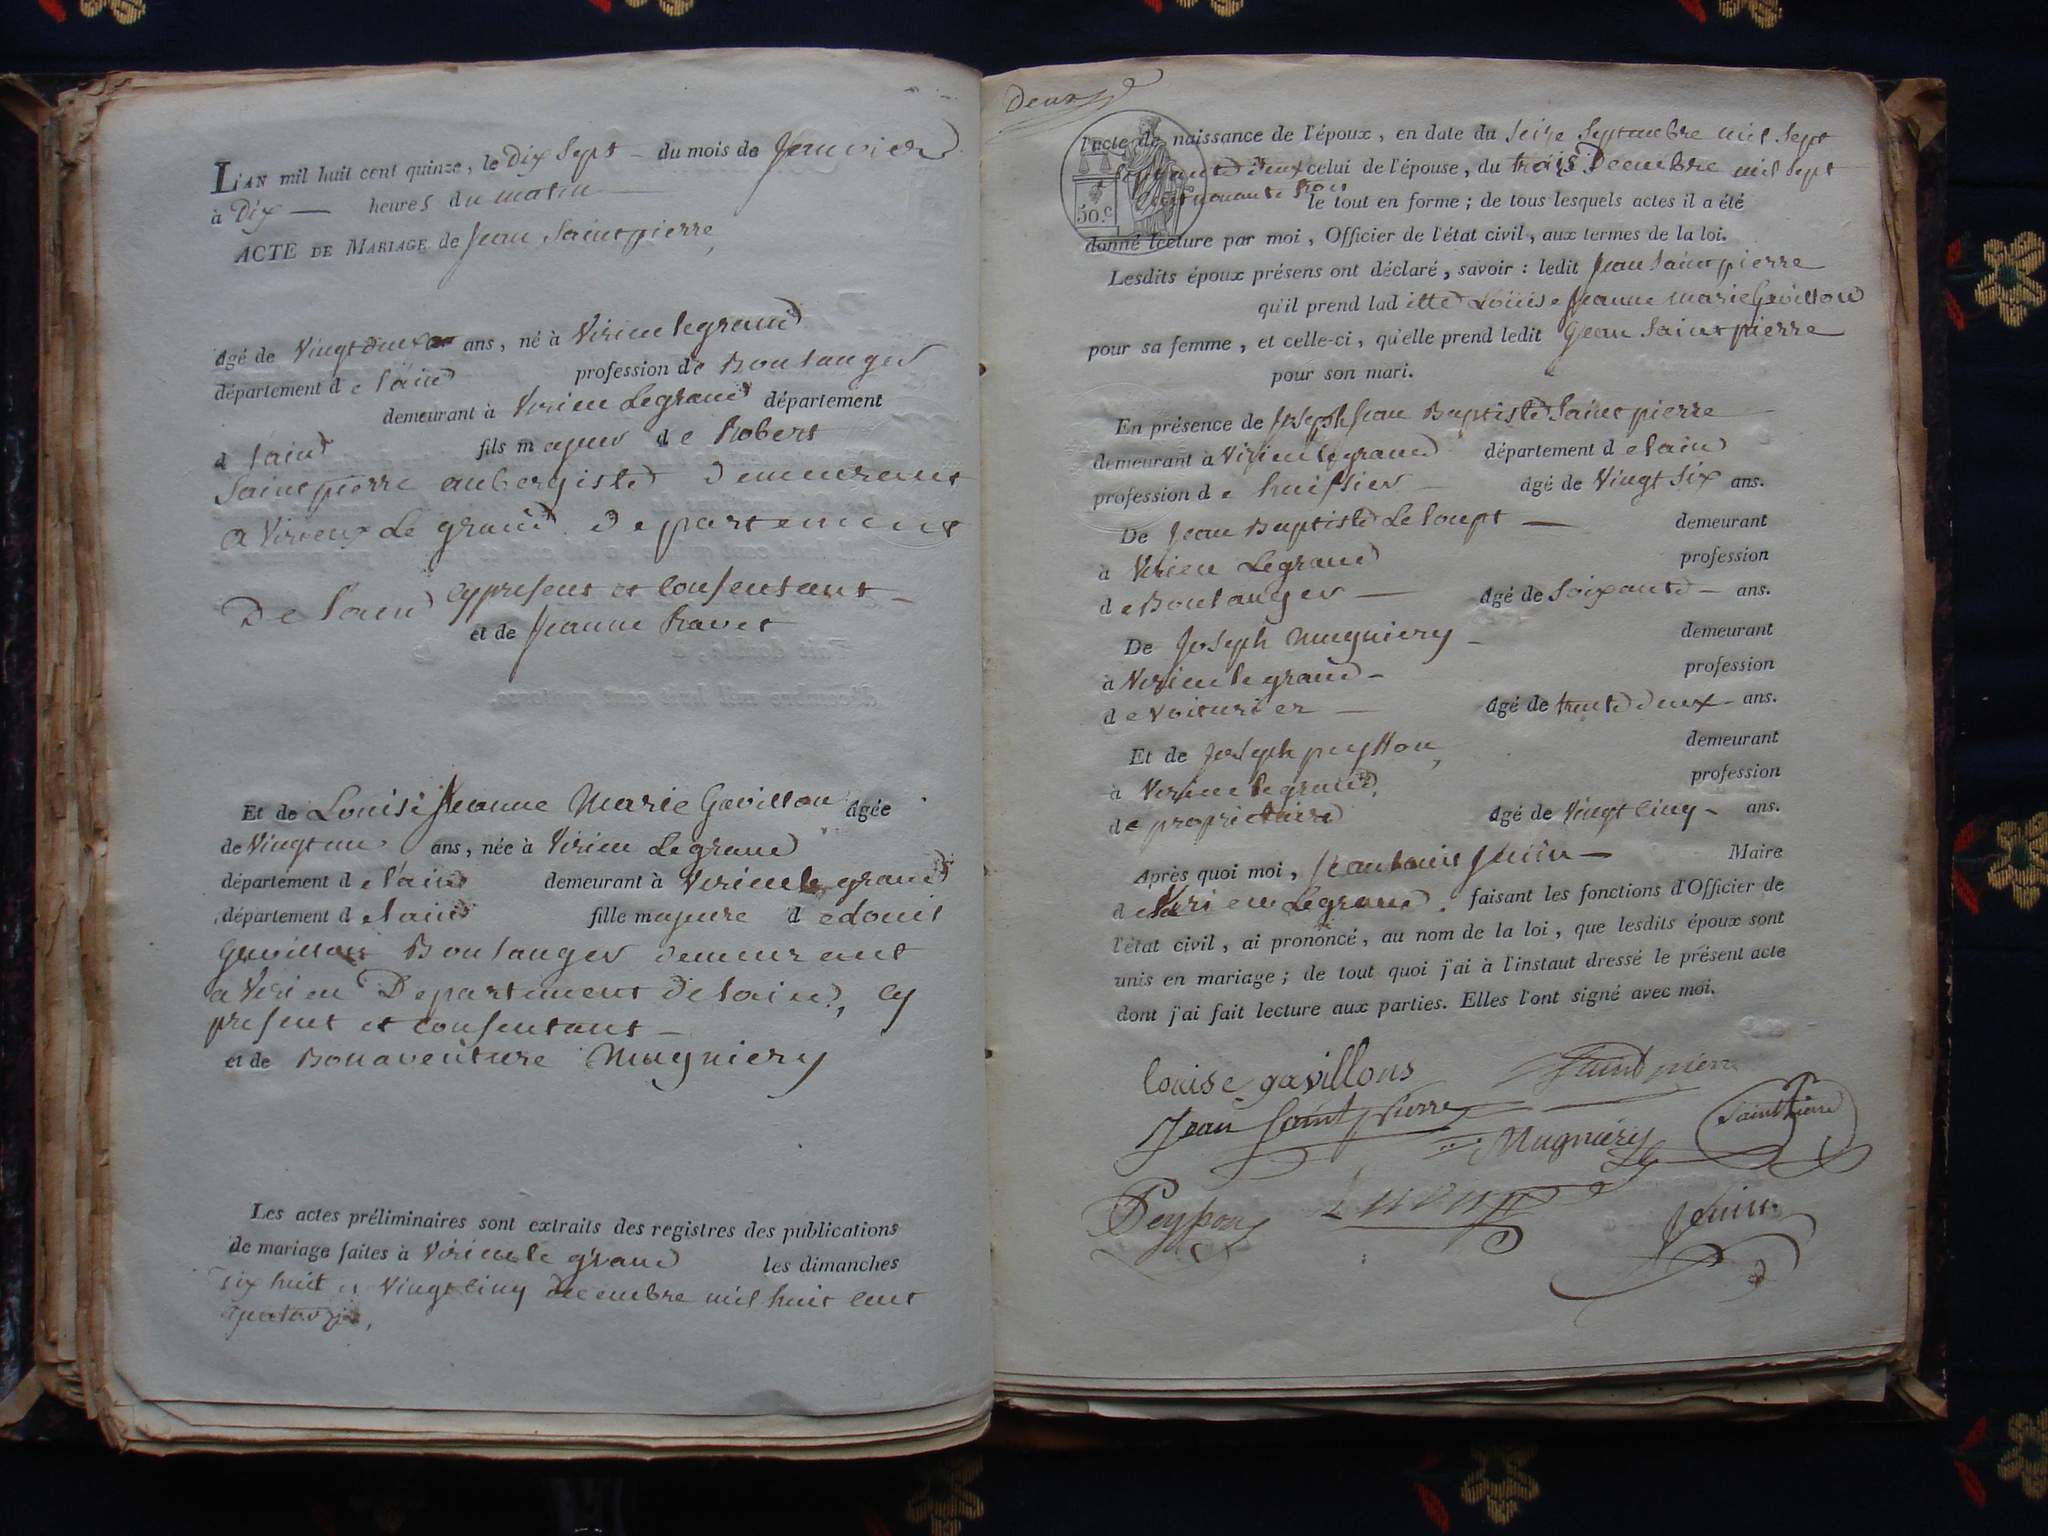 L'AN mil huit cent quinze, le Dix Sept du mois de Janvier
à Dix heures du matin
ACTE DE MARIAGE de Jean Saintpierre,
âgé de Vingt deux ans, né à Virieu legrand
département de lain profession de Boulanger
demeurant à Virieu Legrand département
d lain fils majeur de Robert
Saintpierre aubergiste demeurant
a Virieux Le grand departement
De lain cy present et Consentant
et de Jeanne Ravet
Et de Louise Jeanne Marie Gavillon âgée
de Vingt un ans, née à Virieu Legrand
département de lain demeurant à Virieu le grand
département de lain fille majeure de Louis
Gavillon Boulanger demeurant
a Virieu Departement De lain, cy
present et consentant
et de Bonaventure Mugniery
Les actes préliminaires sont extraits des registres des publications
de mariage faites à Virieu le grand les dimanches
dix huit et Vingt Cinq decembre mil huit cent
quatorze,
l'acte de naissance de l'époux, en date du Seize Septembre mil Sept
deux celui de l'épouse, du trois Decembre mil Sept
trois le tout en forme ; de tous lesquels actes il a été
50.c
donné lecture par moi, Officier de l'état civil, aux termes de la loi.
Lesdits époux présens ont déclaré, savoir : ledit Jean Saintpierre
qu'il prend ladite Louise Jeanne Marie Gavillon
pour sa femme, et celle-ci, qu'elle prend ledit Jean Saintpierre
pour son mari.
En présence de Joseph Jean Baptiste Saintpierre
demeurant à Virieu legrand département de lain
profession de huissier âgé de Vingt Six ans.
De Jean Baptiste Leloupt demeurant
à Virieu Legrand profession
de Boulanger âgé de Soixante ans.
De Joseph Mugniery demeurant
à Virieu le grand profession
de Voiturier âgé de trente deux ans.
Et de Joseph peysson, demeurant
à Virieu le grand, profession
de propriétaire âgé de Vingt Cinq ans.
Après quoi moi, Jean Louis Juin Maire
de Virieu Legrand, faisant les fonctions d'Officier de
l'état civil, ai prononcé, au nom de la loi, que lesdits époux sont
unis en mariage ; de tout quoi j'ai à l'instant dressé le présent acte
dont j'ai fait lecture aux parties. Elles l'ont signé avec moi.
louise gavillons Saint pierre
Jean Saint pierre Mugniéry Saint Pierre
Peysson Juin